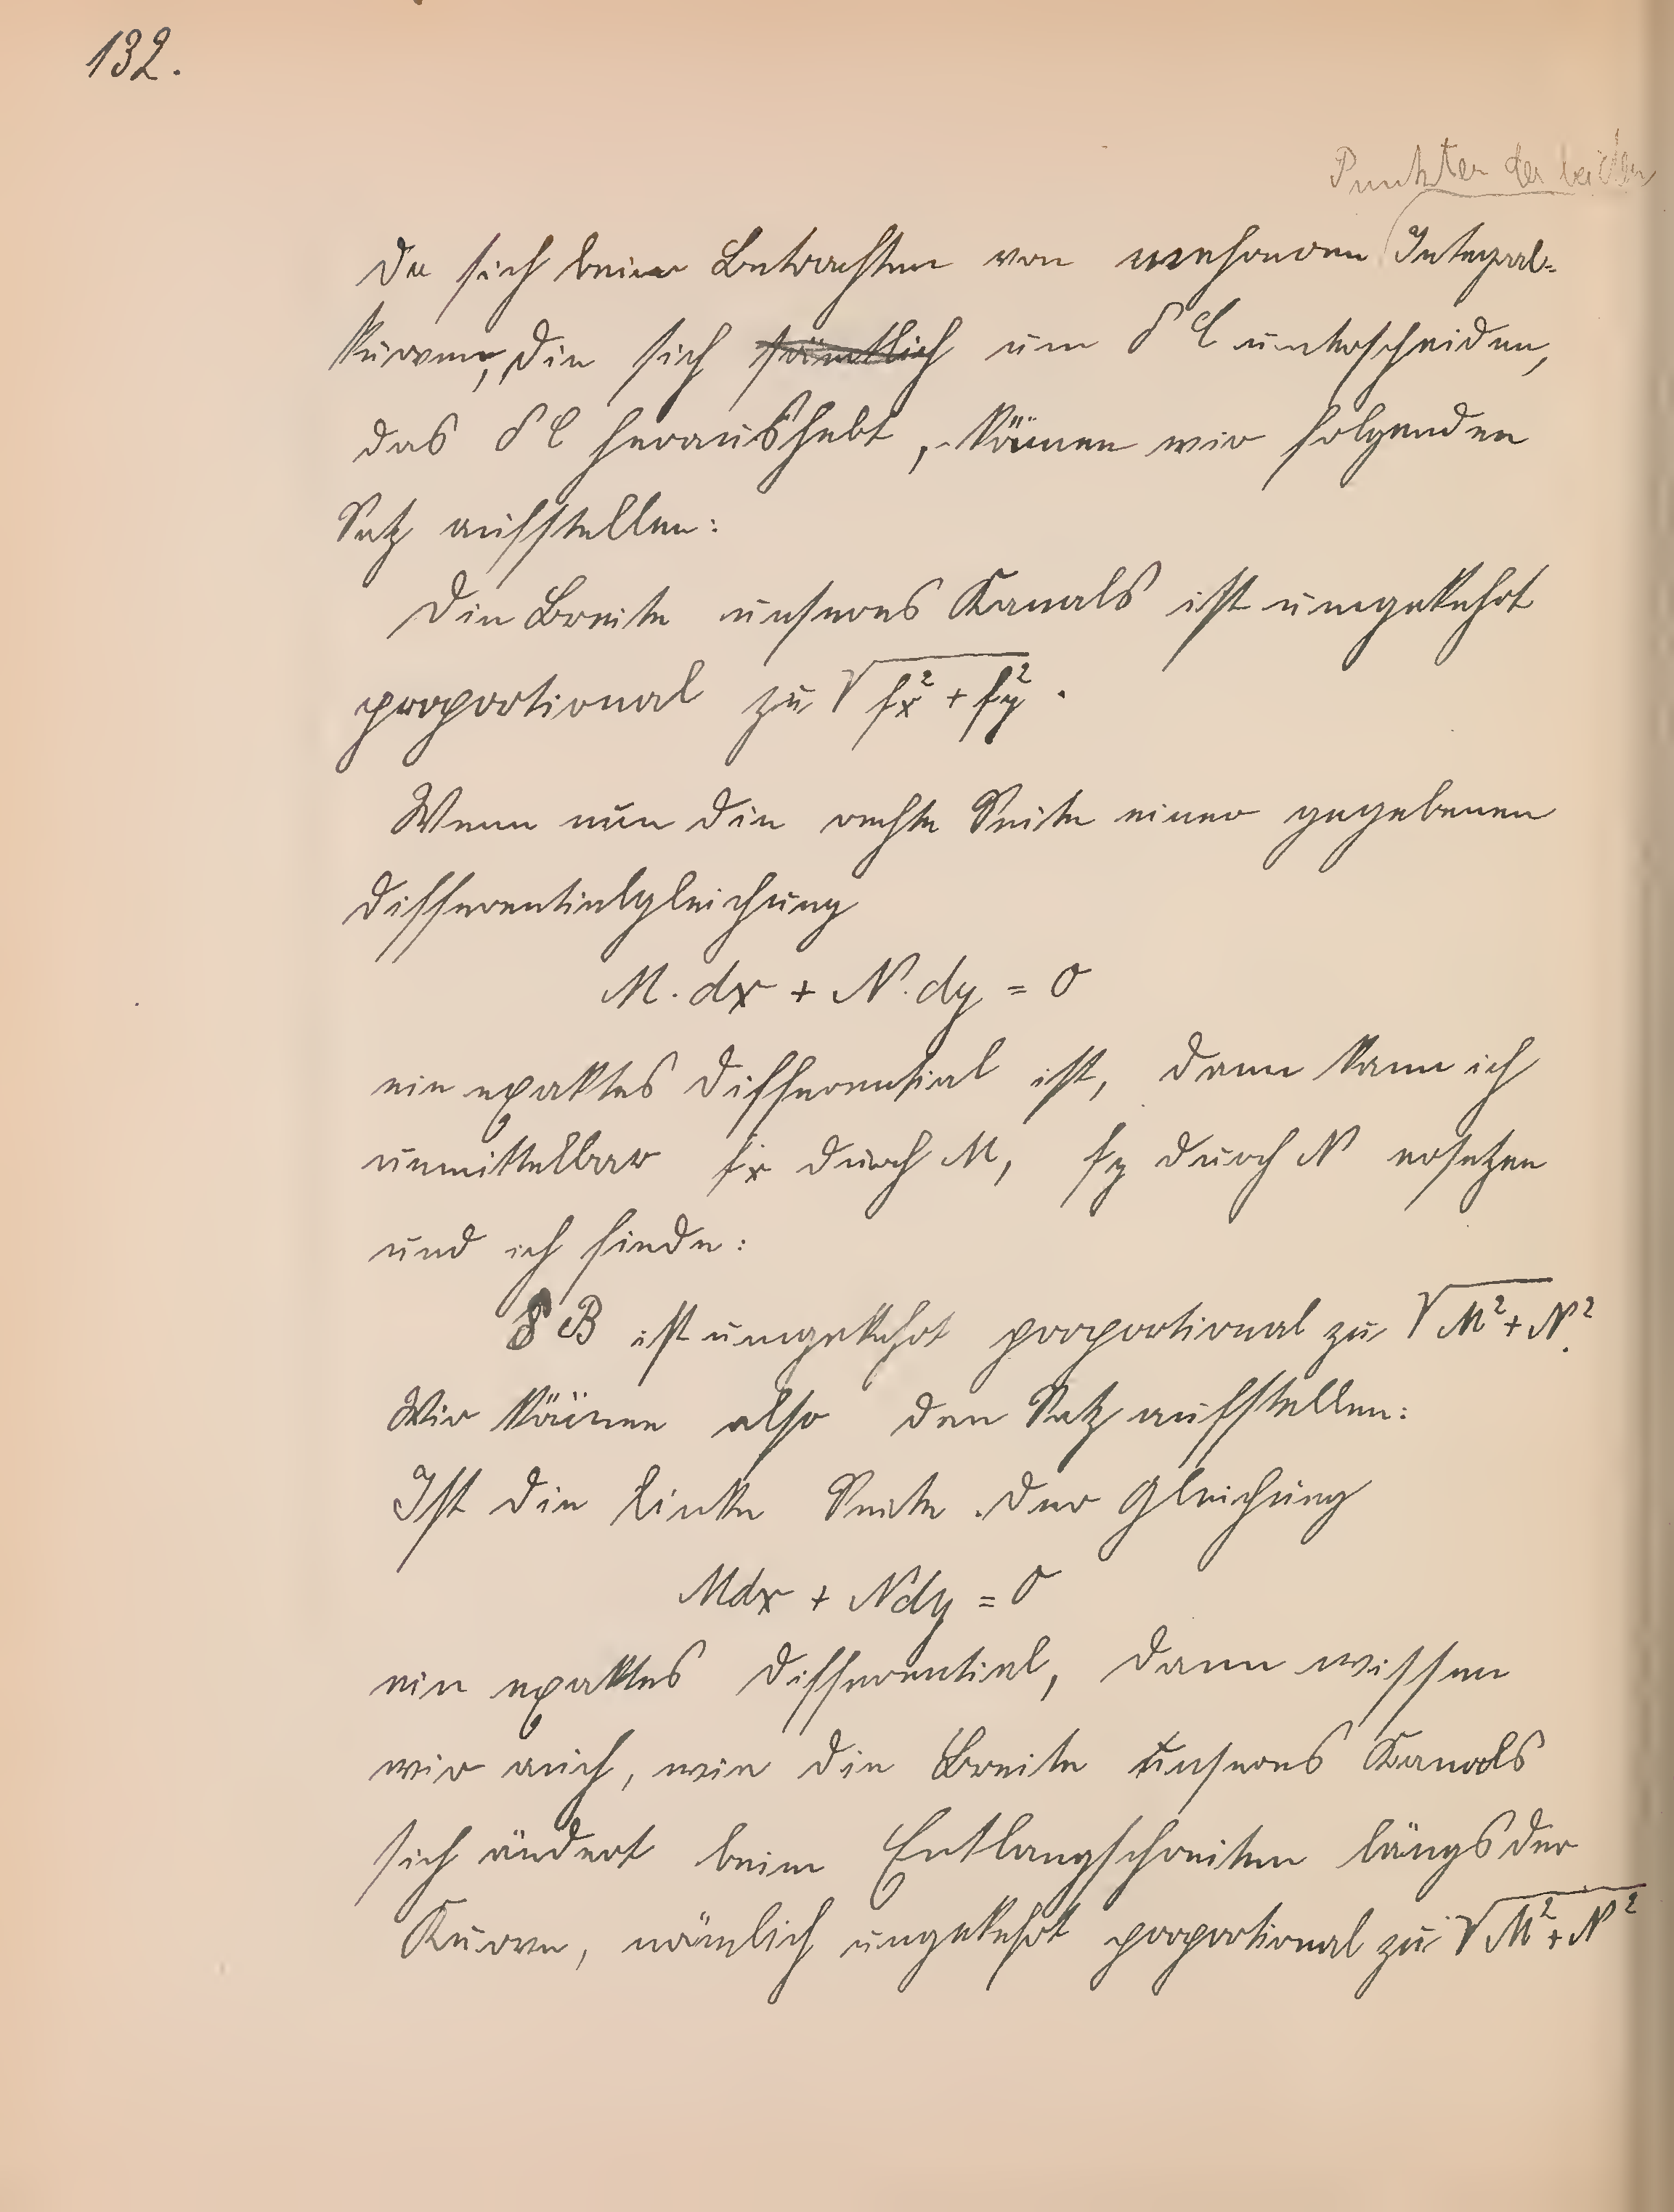 132.
Punkten der beiden
Da sich beim Betrachten von mehreren Integral-
kurven, die sich sämtlich um δ l unterscheiden,
das δ l heraushebt, können wir folgenden
Satz aufstellen:
Die Breite unseres Kanals ist umgekehrt
proportional zu √(fx² + fy²).
Wenn nun die rechte Seite einer gegebenen
Differentialgleichung
M. dx + N. dy = 0
ein exaktes Differential ist, dann kann ich
unmittelbar fx durch M, fy durch N ersetzen
und ich finde:
δ B ist umgekehrt proportional zu √(M² + N²).
Wir können also den Satz aufstellen:
Ist die linke Seite der Gleichung
Mdx + Ndy = 0
ein exaktes Differential, dann wissen
wir auch, wie die Breite unseres Kanals
sich ändert beim Entlangschreiten längs der
Kurve, nämlich umgekehrt proportional zu √(M² + N²)